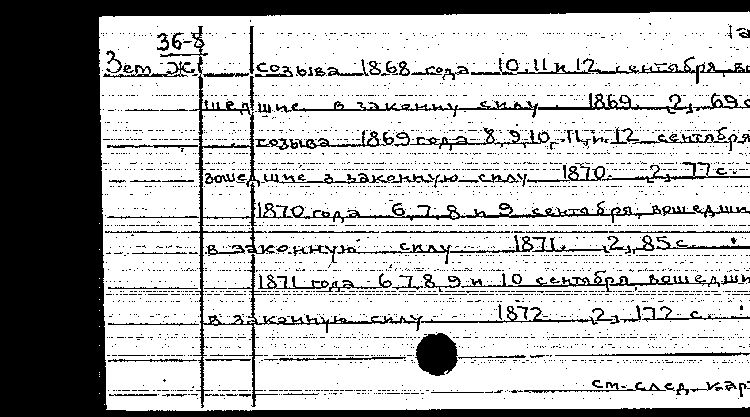 36-8
Зет Ж. созыва 1868 года 10, 11 и 12 сентября, во
шедшие в законну силу 1869. 2, 69 с
созыва 1869 года 8, 9, 10, 11, и 12 сентября
вошедшие в законную силу 1870. 2, 77 с.
1870 года 6, 7, 8 и 9 сентября, вошедши
в законную силу 1871. 2, 85 с.
1871 года 6, 7, 8, 9 и 10 сентября, вошедши
в законную силу 1872 2, 172 с.
см. след. кар